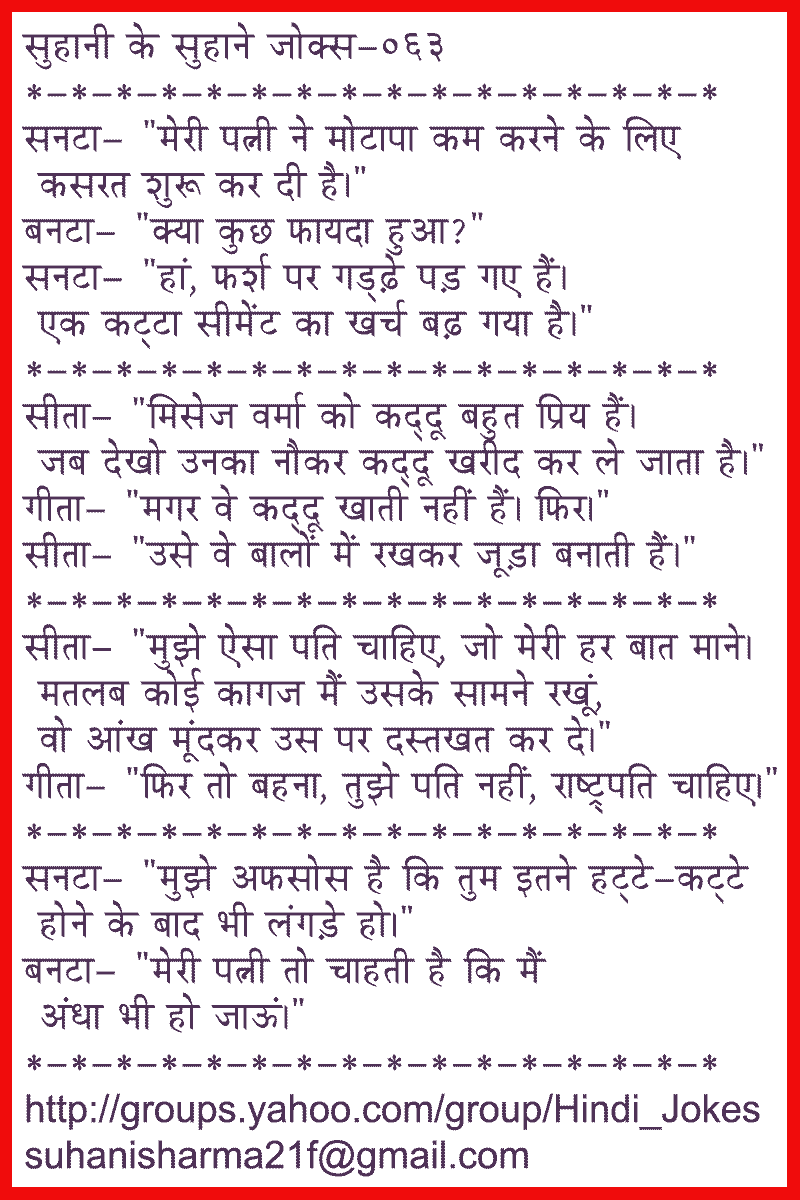 सुहानी के सुहाने जोक्स-०६३
*-*-*-*-*-*-*-*-*-*-*-*-*-*-*-*
सनटा- "मेरी पत्नी ने मोटापा कम करने के लिए
कसरत शुरू कर दी है।"
बनटा- "क्या कुछ फायदा हुआ?"
सनटा- "हां, फर्श पर गड्ढ़े पड़ गए हैं।
एक कट्टा सीमेंट का खर्च बढ़ गया है।"
*-*-*-*-*-*-*-*-*-*-*-*-*-*-*-*
सीता- "मिसेज वर्मा को कद्दू बहुत प्रिय हैं।
जब देखो उनका नौकर कद्दू खरीद कर ले जाता है।"
गीता- "मगर वे कद्दू खाती नहीं हैं। फिर।"
सीता- "उसे वे बालों में रखकर जूड़ा बनाती हैं।"
*-*-*-*-*-*-*-*-*-*-*-*-*-*-*-*
सीता- "मुझे ऐसा पति चाहिए, जो मेरी हर बात माने।
मतलब कोई कागज मैं उसके सामने रखूं,
वो आंख मूंदकर उस पर दस्तखत कर दे।"
गीता- "फिर तो बहना, तुझे पति नहीं, राष्ट्रपति चाहिए।"
*-*-*-*-*-*-*-*-*-*-*-*-*-*-*-*
सनटा- "मुझे अफसोस है कि तुम इतने हट्टे-कट्टे
होने के बाद भी लंगड़े हो।"
बनटा- "मेरी पत्नी तो चाहती है कि मैं
अंधा भी हो जाऊं।"
*-*-*-*-*-*-*-*-*-*-*-*-*-*-*-*
http://groups.yahoo.com/group/Hindi_Jokes
suhanisharma21f@gmail.com